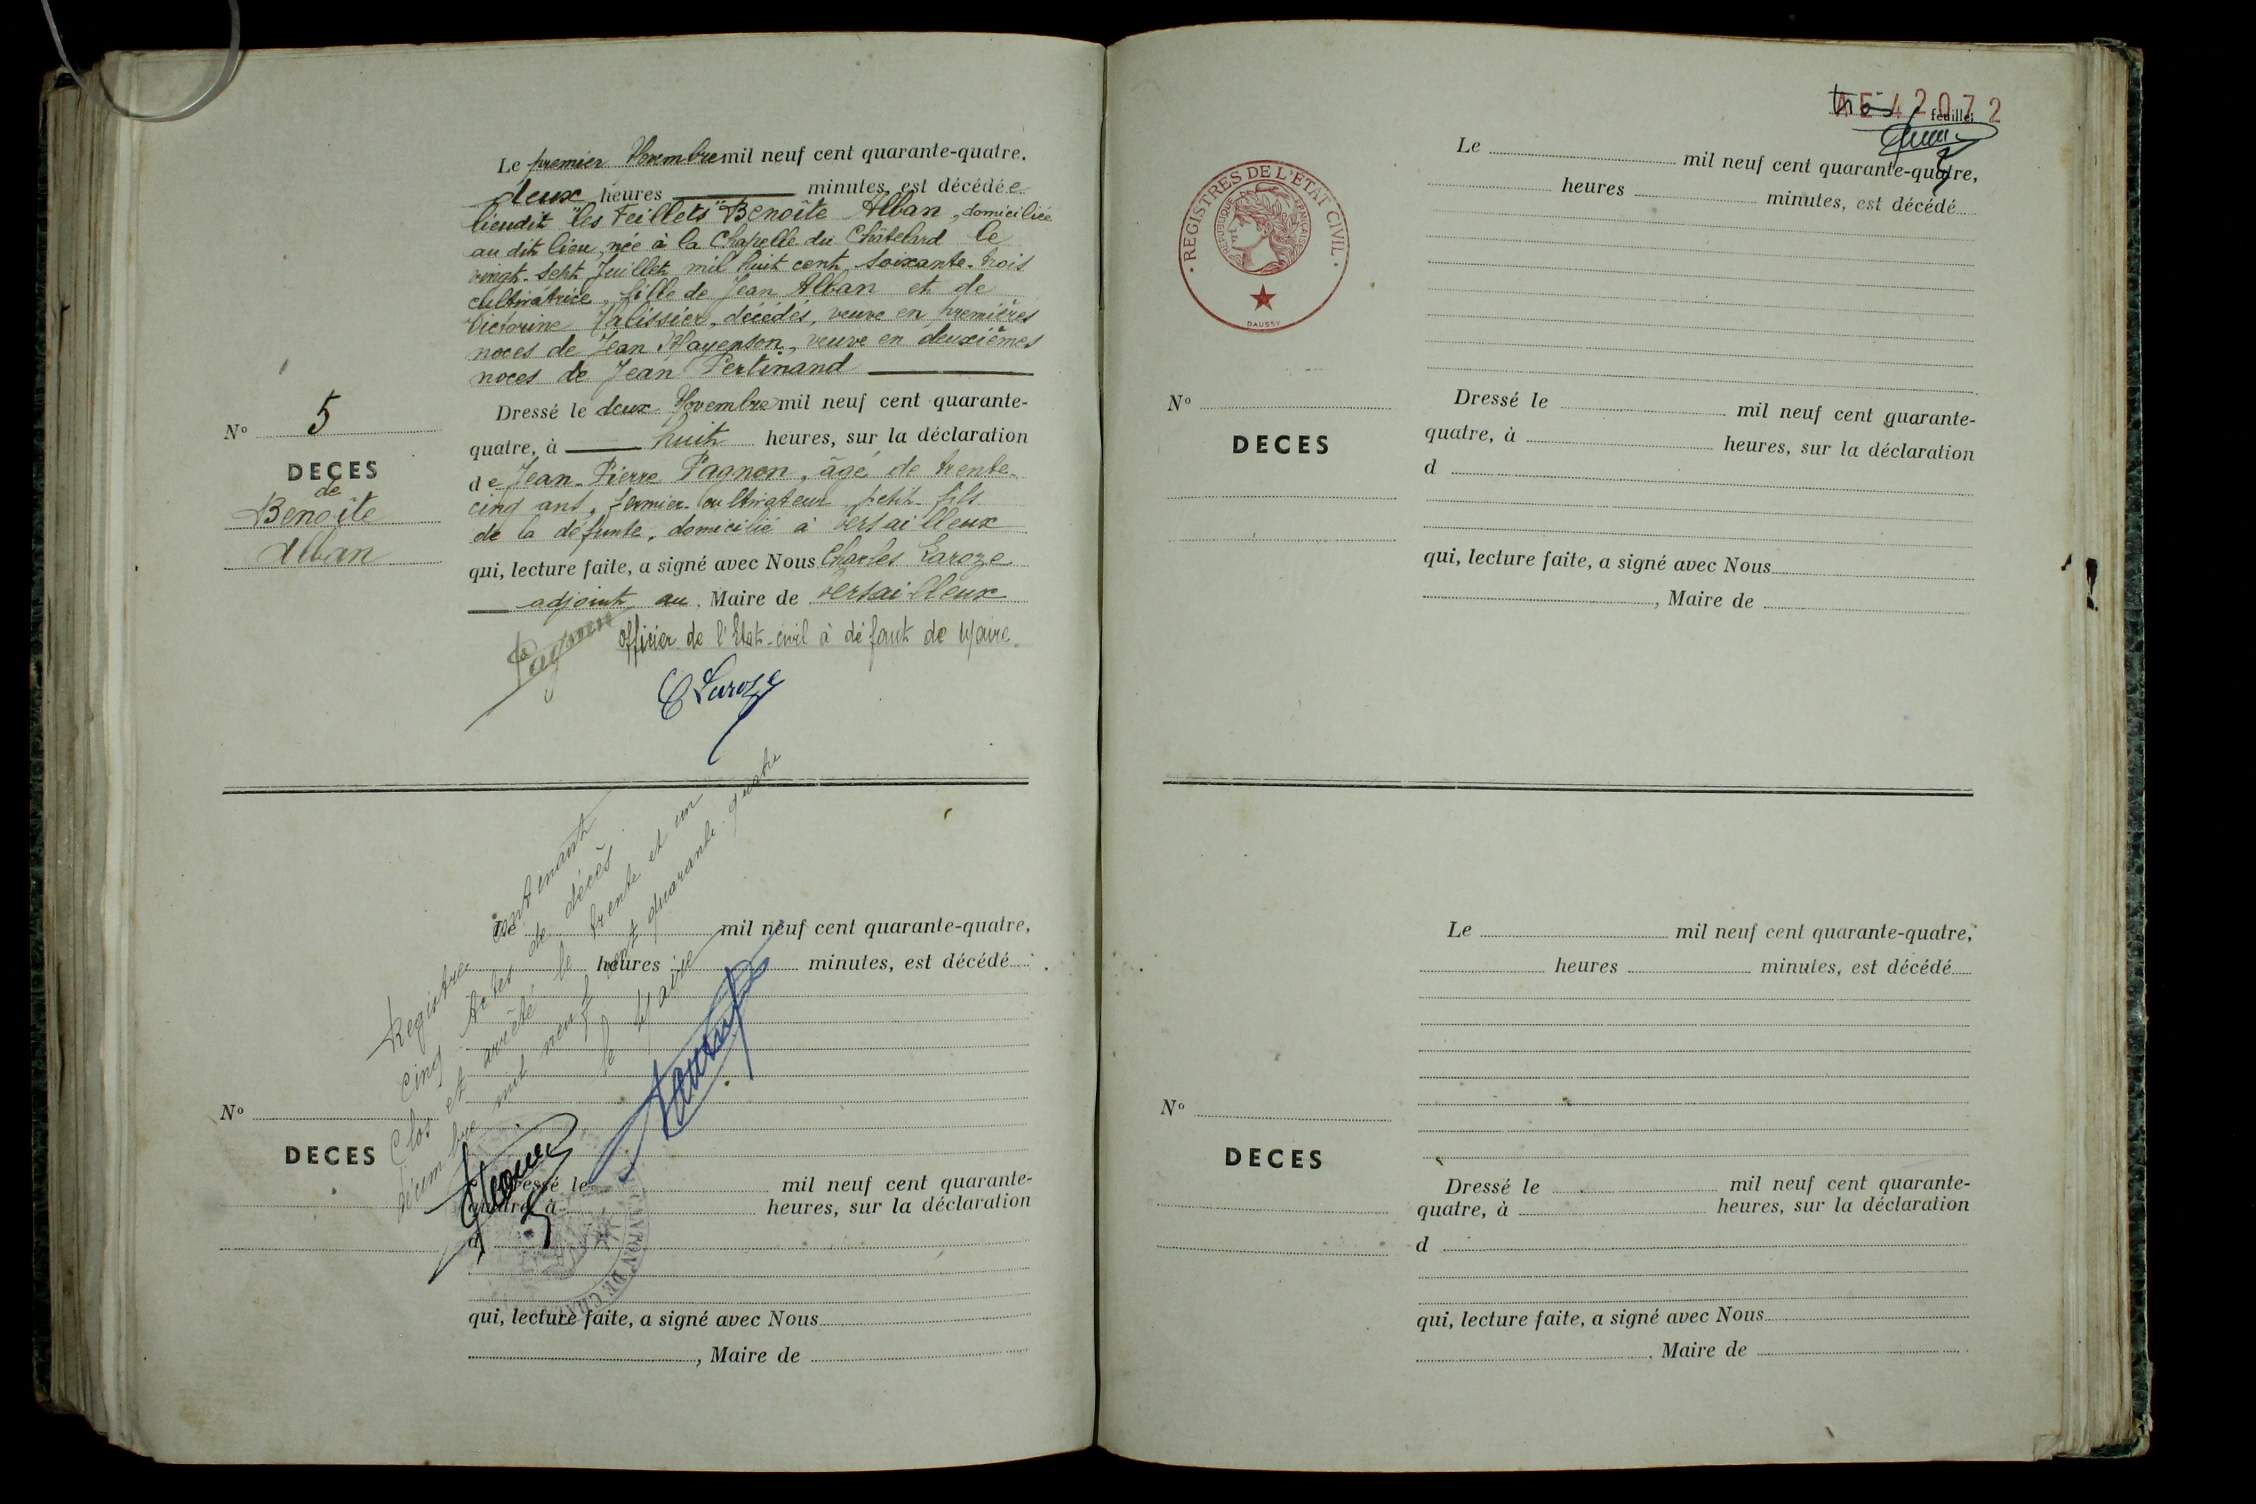 Le premier Novembre mil neuf cent quarante-quatre.
deux heures minutes, est décédée
lieudit "les Feillets" Benoîte Alban, domiciliée
au dit lieu, née à la Chapelle du Châtelard le
vingt-sept Juillet mil huit cent soixante-trois
cultivatrice, fille de Jean Alban et de
Victorine Palissier, décédés, veuve en premières
noces de Jean Mayenson, veuve en deuxièmes
noces de Jean Pertinand
Nº 5
DECES
de
Benoîte
Alban
Dressé le deux Novembre mil neuf cent quarante-
quatre, à huit heures, sur la déclaration
de Jean-Pierre Pagnon, âgé de trente-
cinq ans, fermier-cultivateur petit-fils
de la défunte, domicilié à Versailleux
qui, lecture faite, a signé avec Nous Charles Laroze
adjoint au Maire de Versailleux
Officier de l'Etat-civil à défaut de Maire.
Pagnon
C Laroze
Registre contenant
cinq Actes de décès
Clos et arrêté le trente et un
décembre mil neuf cent quarante-quatre
le Maire
Le mil neuf cent quarante-quatre,
heures minutes, est décédé
Nº
DECES
Dressé le mil neuf cent quarante-
quatre, à heures, sur la déclaration
d
qui, lecture faite, a signé avec Nous
, Maire de
AE 42072
feuillet
REGISTRES DE L'ETAT CIVIL
REPUBLIQUE FRANÇAISE
DAUSSY
Le mil neuf cent quarante-quatre,
heures minutes, est décédé
Nº
DECES
Dressé le mil neuf cent quarante-
quatre, à heures, sur la déclaration
d
qui, lecture faite, a signé avec Nous
, Maire de
Le mil neuf cent quarante-quatre,
heures minutes, est décédé
Nº
DECES
Dressé le mil neuf cent quarante-
quatre, à heures, sur la déclaration
d
qui, lecture faite, a signé avec Nous
, Maire de